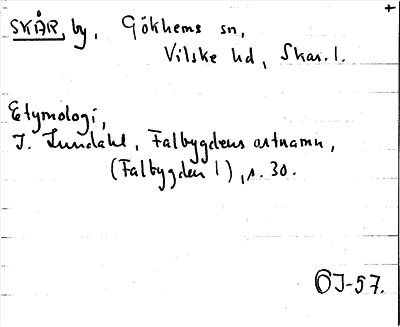 +
SKÅR, by, Gökhems sn,
Vilske hd, Skar. l.
Etymologi,
I. Lundahl, Falbygdens ortnamn,
(Falbygden 1), s. 30.
ÖJ-57.